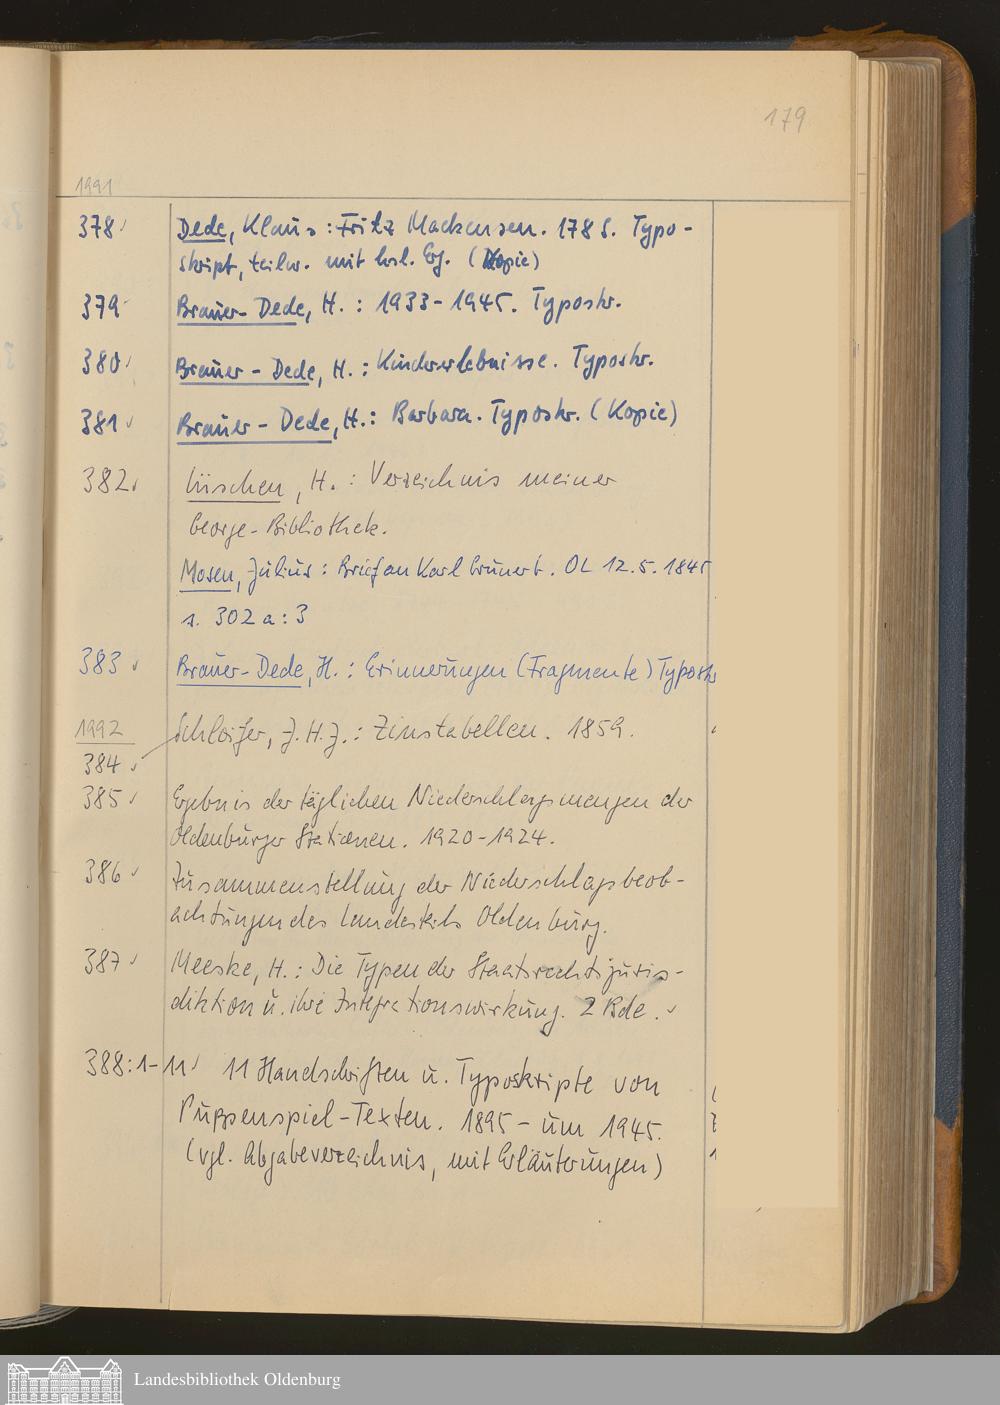 179
1991
378 Dede, Klaus: Fritz Mackensen. 178 S. Typo-
skript, teilw. mit hsl. Erg. (Kopie)
379 Brauer-Dede, H.: 1933-1945. Typoskr.
380 Brauer-Dede, H.: Kindererlebnisse. Typoskr.
381 Brauer-Dede, H.: Barbara. Typoskr. (Kopie)
382 Lüschen, H.: Verzeichnis meiner
George-Bibliothek.
Mosen, Julius: Brief an Karl Grunert. OL 12.5.1845
s. 302 a:3
383 Brauer-Dede, H.: Erinnerungen (Fragmente) Typoskr
1992
384 Schloifer, J.H.J.: Zinstabellen. 1859.
385 Ergebnis der täglichen Niederschlagsmengen der
Oldenburger Stationen. 1920-1924.
386 Zusammenstellung der Niederschlagsbeob-
achtungen des Landesteils Oldenburg.
387 Meeske, H.: Die Typen der Staatsrechtsjuris-
diktion u. ihre Integrationswirkung. 2 Bde.
388:1-11 11 Handschriften u. Typoskripte von
Puppenspiel-Texten. 1895 - um 1945.
(vgl. Abgabeverzeichnis, mit Erläuterungen)
Landesbibliothek Oldenburg